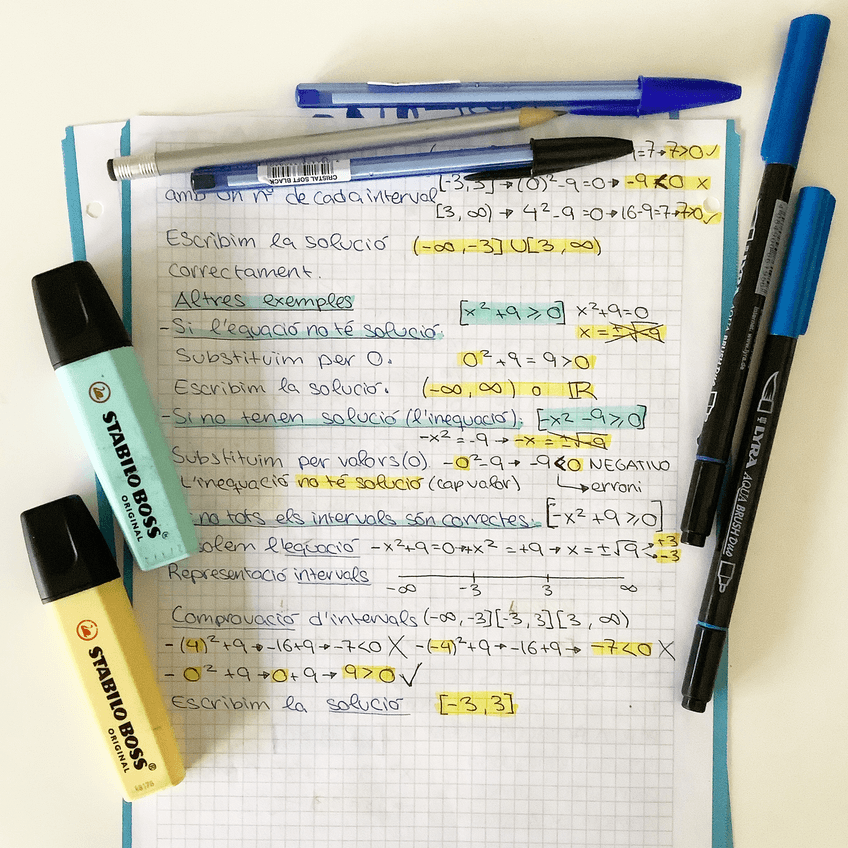 =7→7>0✓
[-3,3]→(0)²-9=0→-9<0 x
amb un nº de cada interval
[3,∞)→4²-9=0→16-9=7→7>0✓
Escribim la solució (-∞,-3]U[3,∞)
correctament.
Altres exemples
[x²+9≥0] x²+9=0
-Si l'equació no té solució.
x=±√-9
Substituim per 0. 0²+9=9>0
Escribim la solució. (-∞,∞) o ℝ
-Si no tenen solució (l'inequació). [-x²-9≥0]
-x²=-9→-x=±√-9
Substituim per valors(0) -0²-9→-9<0 NEGATIVO
L'inequació no té solució (cap valor) ↳erroni
no tots els intervals són correctes. [-x²+9≥0]
solem l'equació -x²+9=0→+x²=+9→x=±√9 +3
-3
Representació intervals
-∞ -3 3 ∞
Comprovació d'intervals (-∞,-3][-3,3][3,∞)
-(4)²+9→-16+9→-7<0 X -(-4)²+9→-16+9→-7<0 X
-0²+9→0+9→9>0✓
Escribim la solució [-3,3]
CRISTAL SOFT BLACK
STABILO BOSS®
ORIGINAL
STABILO BOSS®
ORIGINAL
LYRA AQUA BRUSH DUO
LYRA AQUA BRUSH DUO